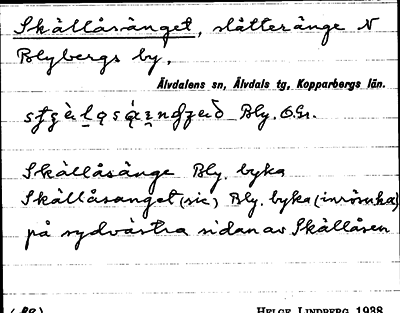 Skållåsänget, slåtteränge N
Blybergs by.
Älvdalens sn, Älvdals tg, Kopparbergs län.
Bly. O.Gs.
Skållåsänge Bly. byka
Skållåsanget (sic) Bly. byka (inrösn.ka)
på sydvästra sidan av Skållåsen
HELGE LINDBERG 1938